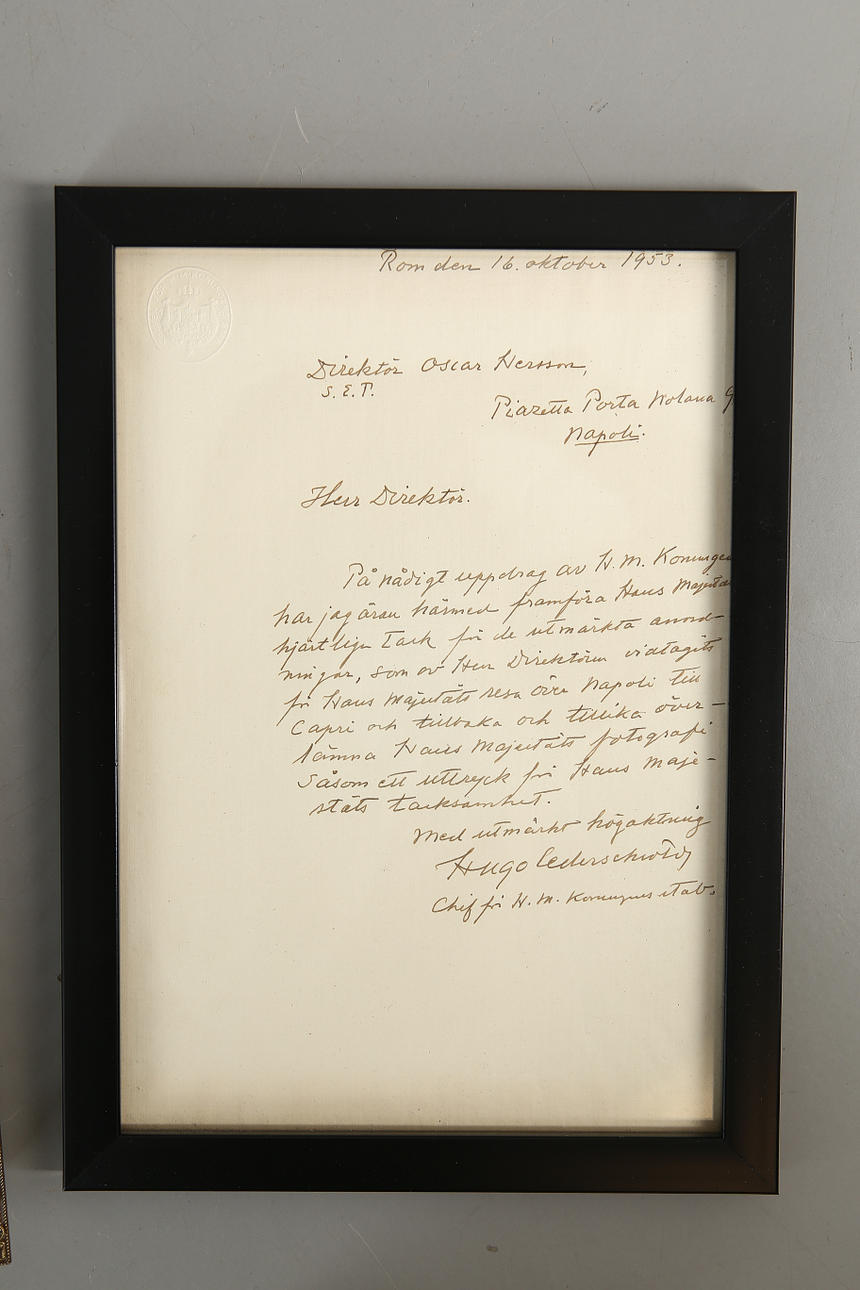 Rom den 16. oktober 1953.
Direktör Oscar
S.E.T.
Piazetta Porta Nolana 9
Napoli.
Herr Direktör.
På nådigt uppdrag av H.M. Konungen
har jag äran härmed framföra Hans Majestäts
hjärtliga tack för de utmärkta anord-
ningar, som av Herr Direktören vidtagits
för Hans Majestäts resa över Napoli till
Capri och tillbaka och tillika över-
lämna Hans Majestäts fotografi
såsom ett uttryck för Hans Maje-
stäts tacksamhet.
Med utmärkt högaktning
Hugo Cederschiöld
Chef för H.M. Konungens stab.